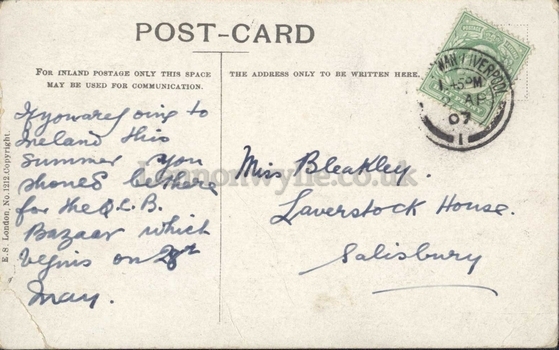 POST-CARD
FOR INLAND POSTAGE ONLY THIS SPACE
MAY BE USED FOR COMMUNICATION.
THE ADDRESS ONLY TO BE WRITTEN HERE.
E.S. London, No. 1212. Copyright.
WAN LIVERPOOL
1.45PM
AP
07
1
If you are going to
Ireland this
summer you
should be there
for the Q.L.B.
Bazaar which
begins on 28th
May.
Miss Bleakley.
Laverstock House.
Salisbury
lennonwylie.co.uk